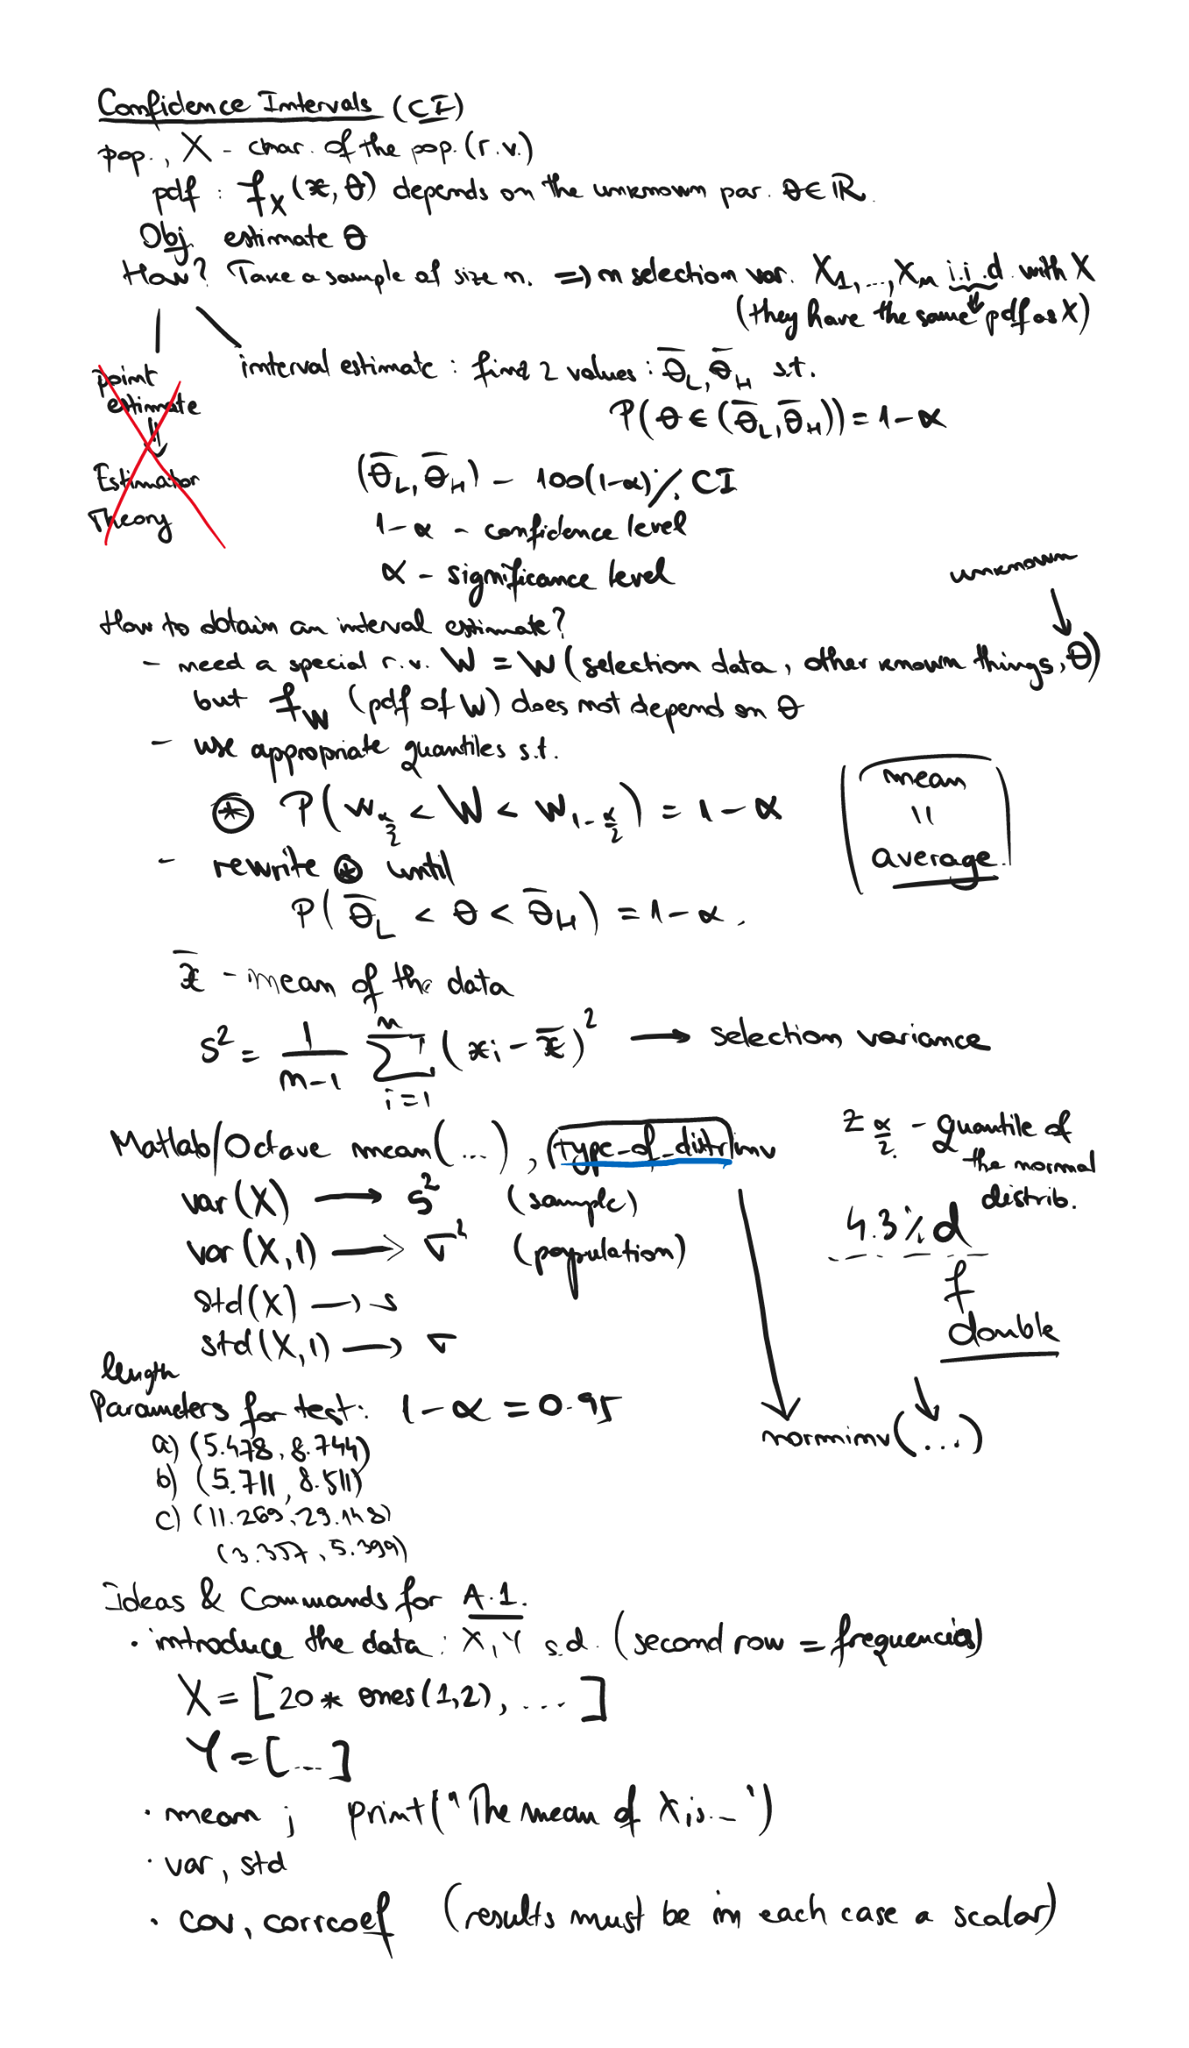 Confidence Intervals (CI)
pop., X - char. of the pop. (r.v.)
pdf : f_X (x, θ) depends on the unknown par. θ ∈ ℝ.
Obj. estimate θ
How? Take a sample of size n. => n selection var. X_1, ..., X_n i.i.d. with X
(they have the same pdf as X)
point
estimate
⇓
Estimator
Theory
interval estimate : find 2 values : θ̄_L, θ̄_H s.t.
P(θ ∈ (θ̄_L, θ̄_H)) = 1-α
(θ̄_L, θ̄_H) - 100(1-α)% CI
1-α - confidence level
α - significance level
unknown
How to obtain an interval estimate?
- need a special r.v. W = W (selection data, other known things, θ)
but f_W (pdf of W) does not depend on θ
- use appropriate quantiles s.t.
⊛ P(w_{α/2} < W < w_{1-α/2}) = 1-α
- rewrite ⊛ until
P(θ̄_L < θ < θ̄_H) = 1-α.
mean
=
average.
x̄ - mean of the data
s² = 1/(n-1) Σ_{i=1}^{n} (x_i - x̄)² → selection variance
Matlab/Octave mean(...), (type_of_distr)inv
z_{α/2} - quantile of
the normal
distrib.
var(X) → s² (sample)
var(X,1) → σ² (population)
std(X) → s
std(X,1) → σ
4.3%d
f
double
length
Parameters for test: 1-α = 0.95
norminv(...)
a) (5.478, 8.744)
b) (5.711, 8.511)
c) (11.269, 29.148)
(3.357, 5.399)
Ideas & Commands for A.1.
· introduce the data: X, Y s.d. (second row = frequencies)
X = [20 * ones(1,2), ...]
Y = [...]
· mean ; print("The mean of X is...")
· var, std
· cov, corrcoef (results must be in each case a scalar)